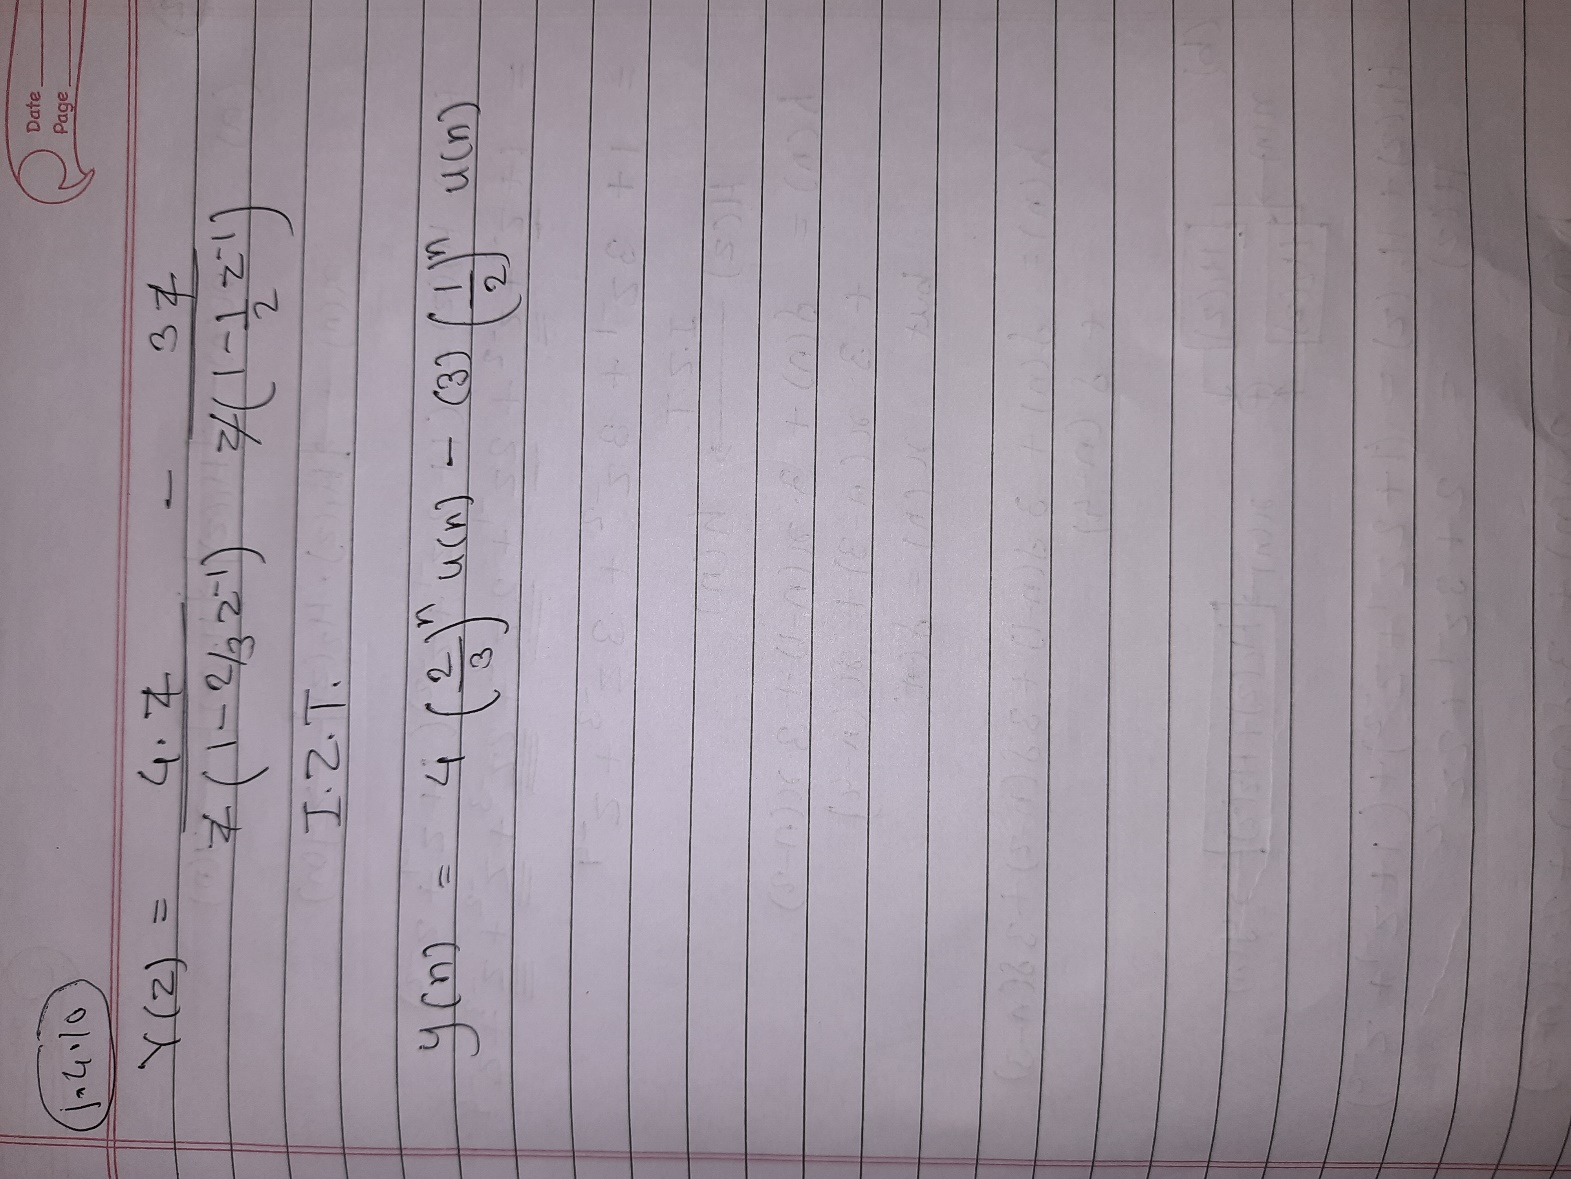 Date
Page
Y(z) = 4.z / z(1-2/3 z^-1) - 3z / z(1-1/2 z^-1)
I.Z.T.
y(n) = 4 (2/3)^n u(n) - (3) (1/2)^n u(n)